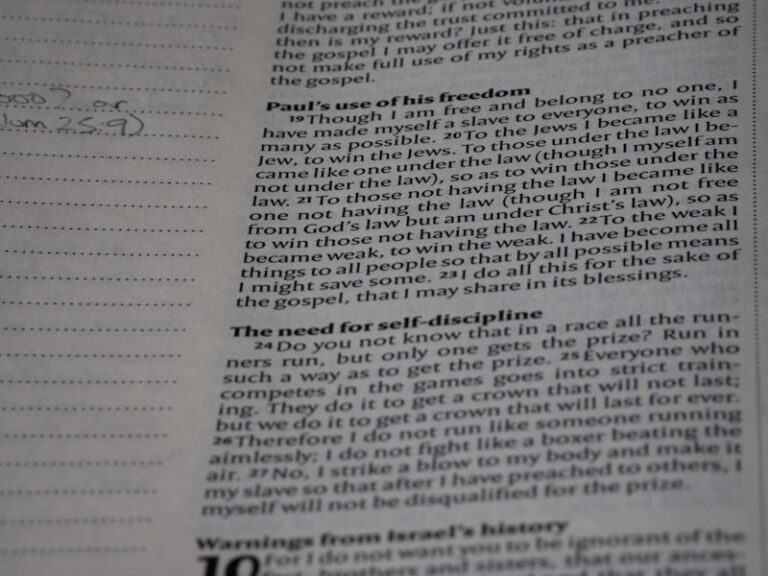 or
25:9)
not preach the
I have a reward; if not
discharging the trust committed to me.
then is my reward? Just this: that in preaching
the gospel I may offer it free of charge, and so
not make full use of my rights as a preacher of
the gospel.
Paul's use of his freedom
19Though I am free and belong to no one, I
have made myself a slave to everyone, to win as
many as possible. 20To the Jews I became like a
Jew, to win the Jews. To those under the law I be-
came like one under the law (though I myself am
not under the law), so as to win those under the
law. 21To those not having the law I became like
one not having the law (though I am not free
from God's law but am under Christ's law), so as
to win those not having the law. 22To the weak I
became weak, to win the weak. I have become all
things to all people so that by all possible means
I might save some. 23I do all this for the sake of
the gospel, that I may share in its blessings.
The need for self-discipline
24Do you not know that in a race all the run-
ners run, but only one gets the prize? Run in
such a way as to get the prize. 25Everyone who
competes in the games goes into strict train-
ing. They do it to get a crown that will not last;
but we do it to get a crown that will last for ever.
26Therefore I do not run like someone running
aimlessly; I do not fight like a boxer beating the
air. 27No, I strike a blow to my body and make it
my slave so that after I have preached to others, I
myself will not be disqualified for the prize.
Warnings from Israel's history
10 For I do not want you to be ignorant of the
brothers and sisters, that our ances-
they all